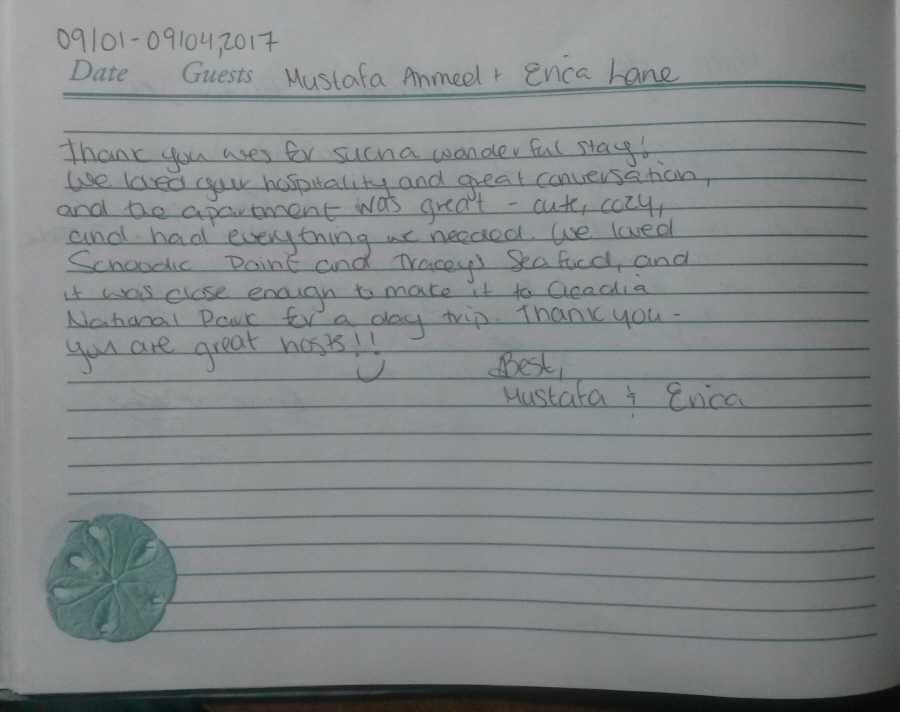 09/01-09/04,2017
Date Guests Mustafa Ahmed + Erica Lane
Thank you us for such a wonderful stay!
We loved your hospitality and great conversation,
and the apartment was great - cute, cozy,
and had everything we needed. We loved
Schoodic Point and Tracey's Seafood, and
it was close enough to make it to Acadia
National Park for a day trip. Thank you -
you are great hosts!!
Best,
Mustafa & Erica